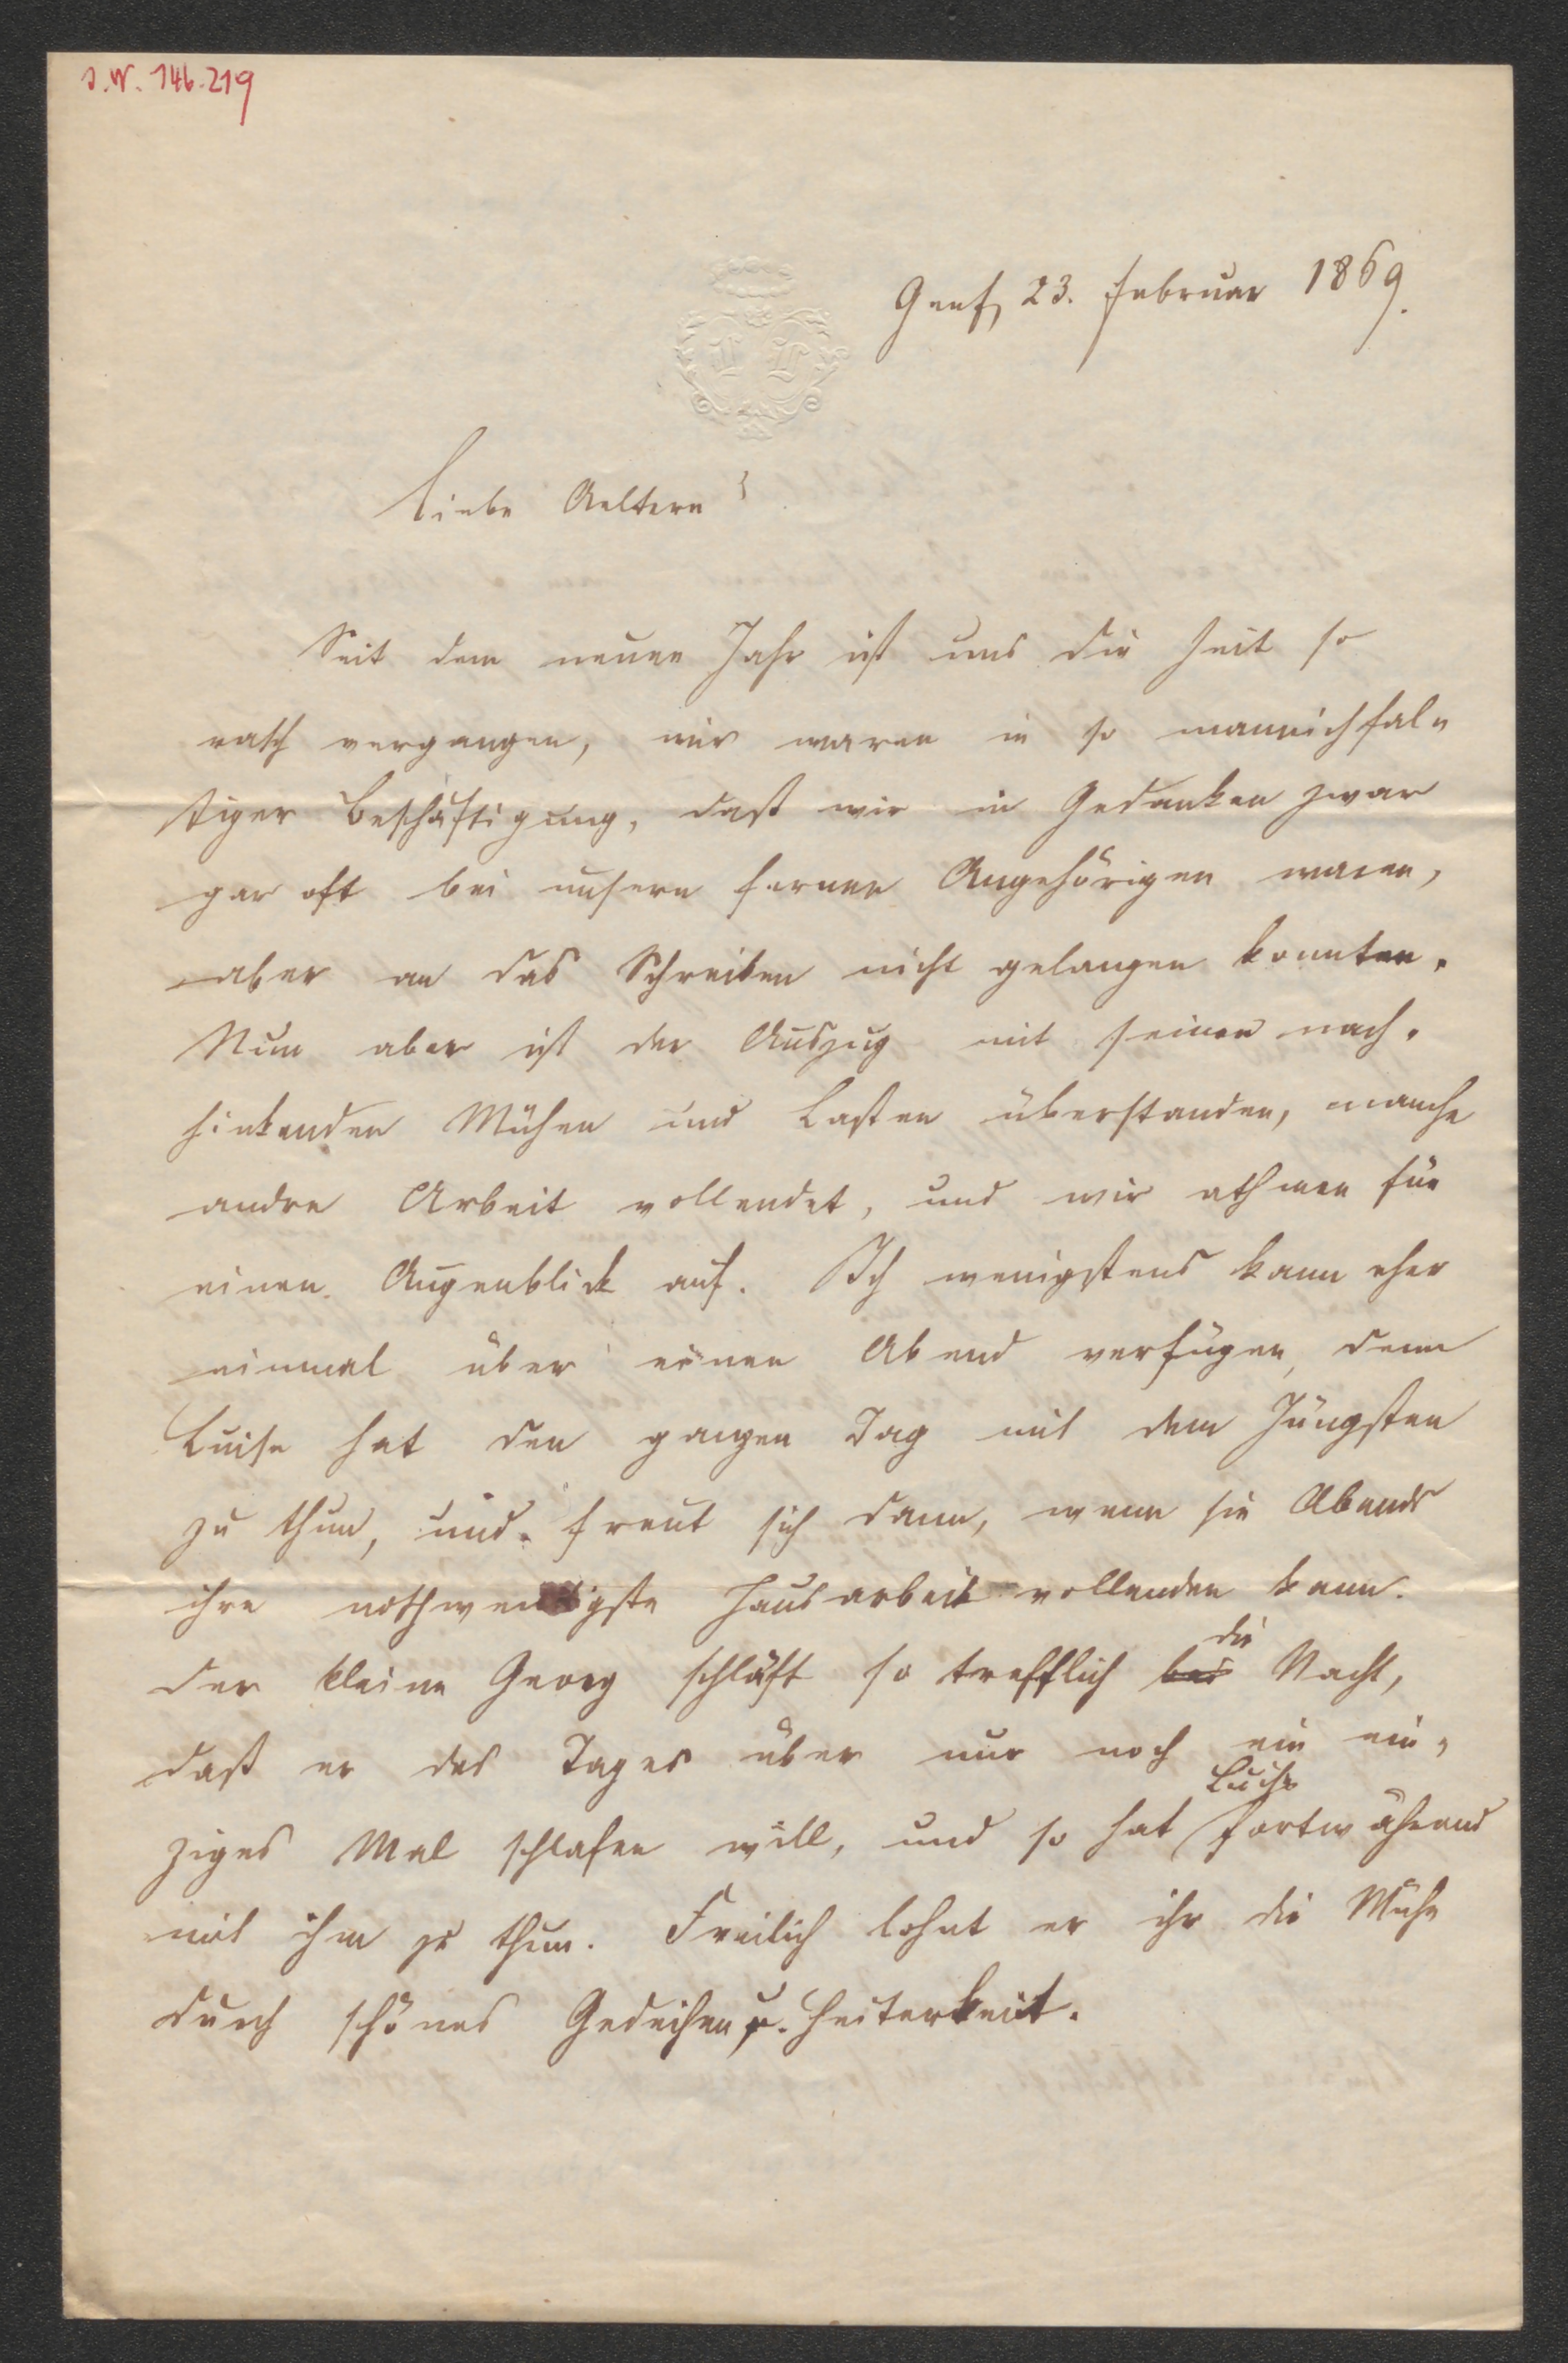 J.N. 146.219
Genf, 23. Februar 1869.
Liebe Aeltern!
Seit dem neuen Jahr ist uns die Zeit so
rasch vergangen, wir waren in so mannichfal-
tiger Beschäftigung, daß wir in Gedanken zwar
gar oft bei unsern fernen Angehörigen waren,
aber an das Schreiben nicht gelangen konnten.
Nun aber ist der Auszug mit seinen nach-
hinkenden Mühen und Lasten überstanden, manche
andre Arbeit vollendet, und wir athmen für
einen Augenblick auf. Ich wenigstens kann eher
einmal über einen Abend verfügen, denn
Luise hat den ganzen Tag mit dem Jüngsten
zu thun, und freut sich dann, wenn sie Abends
ihre nothwendigste Hausarbeit vollenden kann.
Der kleine Georg schläft so trefflich bei die Nacht,
daß er des Tages über nur noch ein ein-
ziges Mal schlafen will, und so hat Luise fortwährend
mit ihm zu thun. Freilich lohnt er ihr die Mühe
durch schönes Gedeihen u. Heiterkeit.